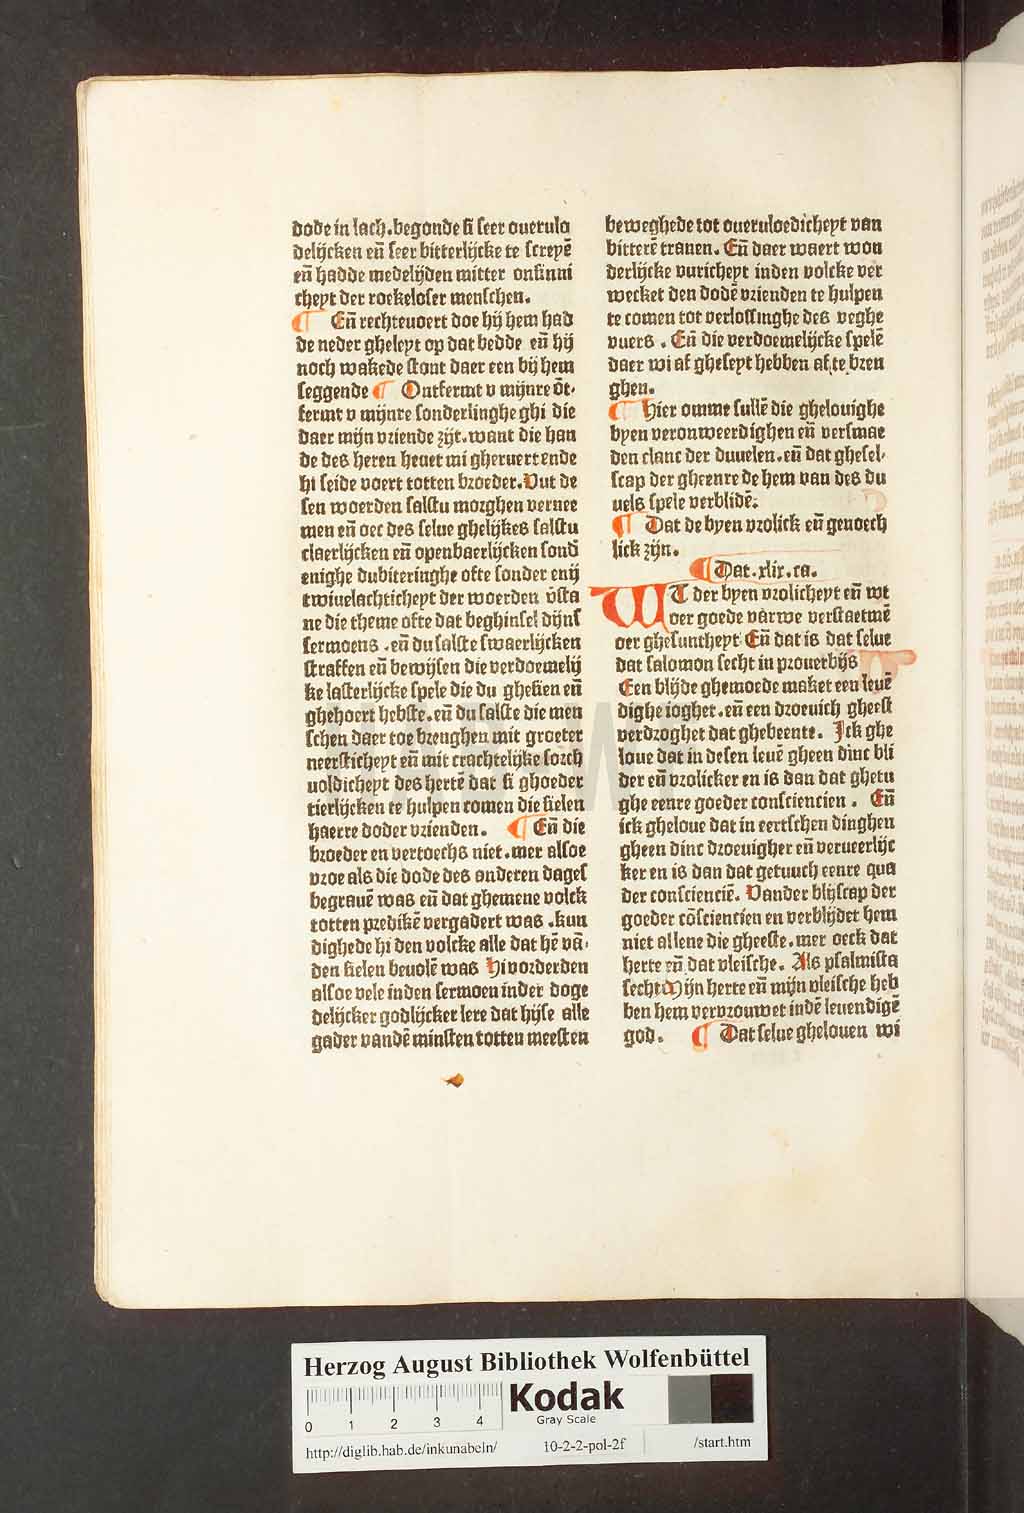 dode in lach.begonde si seer ouerulo
delijcken eñ seer bitterlijcke te screpē
eñ hadde medelijden mitter onsinni
cheyt der roekeloser menschen.
¶ Eñ rechteuoert doe hij hem had
de neder gheleyt op dat bedde eñ hij
noch wakede stont daer een bij hem
seggende ¶ Ontfermt v mijnre ōt⸗
fermt v mijnre sonderlinghe ghi die
daer mijn vriende zijt.want die han
de des heren heuet mi gheruert ende
hi seide voert totten broeder.Vut de
sen woerden salstu morghen vernee
men eñ oec des selue ghelijkes salstu
claerlijcken eñ openbaerlijcken sond̄
enighe dubiteringhe ofte sonder enij
twiuelachticheyt der woerden v̄sta
ne die theme ofte dat beghinsel dijns
sermoens .eñ du salste swaerlijcken
straffen eñ bewijsen die verdoemelij
ke lasterlijcke spele die du ghesien eñ
ghehoert hebste.eñ du salste die men
schen daer toe brenghen mit groeter
neersticheyt eñ mit crachtelijke sorch
uoldicheyt des hertē dat si ghoeder
tierlijcken te hulpen comen die sielen
haerre doder vrienden. ¶ Eñ die
broeder en vertoechs niet.mer alsoe
vroe als die dode des anderen dages
begrauē was eñ dat ghemene volck
totten predikē vergadert was .kun
dighede hi den volcke alle dat hē vā⸗
den sielen beuolē was Hi vorderden
alsoe vele inden sermoen inder doge
delijcker godlijcker lere dat hijse alle
gader vandē minsten totten meesten
beweghede tot oueruloedicheyt van
bitterē tranen. Eñ daer waert won
derlijcke vuricheyt inden volcke ver
wecket den dodē vrienden te hulpen
te comen tot verlossinghe des veghe
vuers . Eñ die verdoemelijcke spelē
daer wi af gheseyt hebben af te bren
ghen.
¶ Hier omme sullē die ghelouighe
byen veronweerdighen eñ versmae
den clanc der duuelen.eñ dat ghesel⸗
scap der gheenre de hem van des du
uels spele verblidē.
¶ Dat de byen vrolick eñ genoech
lick zijn.
¶ Dat .xlix.ca.
WT der byen vrolicheyt eñ wt
oer goede varwe verstaetmē
oer ghesuntheyt Eñ dat is dat selue
dat salomon secht in prouerbijs
Een blijde ghemoede maket een leuē
dighe ioghet.eñ een droeuich gheest
verdroghet dat ghebeente. Ick ghe
loue dat in desen leuē gheen dinc bli
der eñ vrolicker en is dan dat ghetu
ghe eenre goeder consciencien . Eñ
ick gheloue dat in eertschen dinghen
gheen dinc droeuigher eñ verueerlijc
ker en is dan dat getuuch eenre qua
der consciencië. Vander blijscap der
goeder cōsciencien en verblijdet hem
niet allene die gheeste.mer oeck dat
herte eñ dat vleische. Als psalmista
secht Mijn herte eñ mijn vleische heb
ben hem vervrouwet indē leuendigē
god. ¶ Dat selue ghelouen wi
Herzog August Bibliothek Wolfenbüttel
0 1 2 3 4
Kodak
Gray Scale
http://diglib.hab.de/inkunabeln/ 10-2-2-pol-2f /start.htm